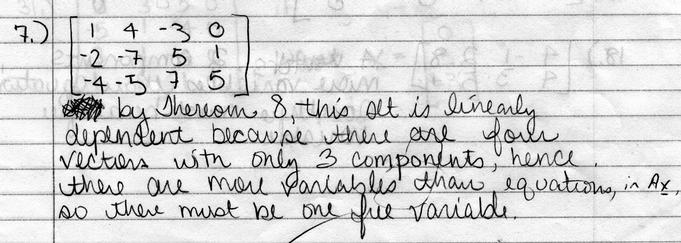 7.) [ 1 4 -3 0
-2 -7 5 1
-4 -5 7 5 ]
by Thereom 8, this set is linearly
dependent because there are four
vectors with only 3 components, hence
there are more variables than equations, in Ax,
so there must be one free variable.